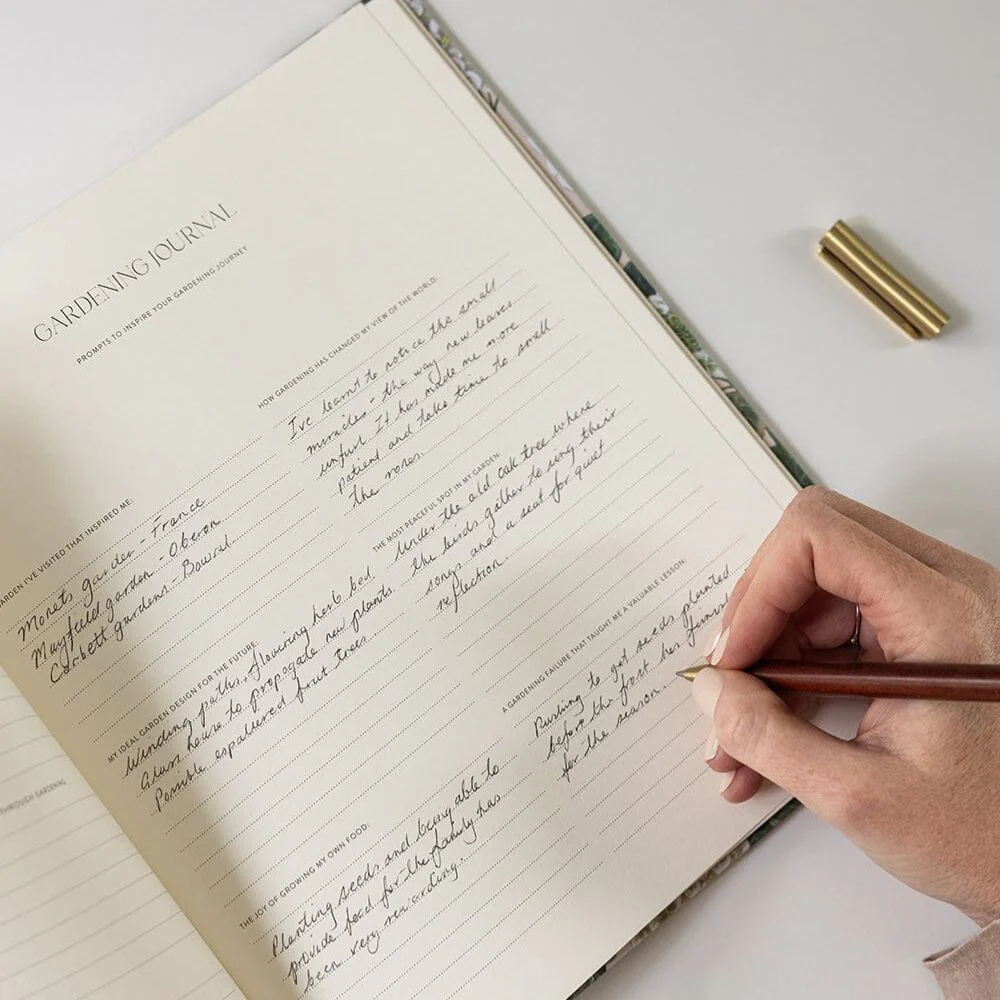 GARDENING JOURNAL
PROMPTS TO INSPIRE YOUR GARDENING JOURNEY
GARDEN I'VE VISITED THAT INSPIRED ME:
Monets garden - France
Mayfield garden - Oberon
Corbett gardens - Bowral
MY IDEAL GARDEN DESIGN FOR THE FUTURE:
Winding paths, flowering herb bed.
Glass house to propogate new plants
Possible espaliered fruit trees
THE JOY OF GROWING MY OWN FOOD:
Planting seeds and being able to
provide food for the family has
been very rewarding.
HOW GARDENING HAS CHANGED MY VIEW OF THE WORLD:
I've learnt to notice the small
miracles - the way new leaves
unfurl. It has made me more
patient and take time to smell
the roses.
THE MOST PEACEFUL SPOT IN MY GARDEN:
Under the old oak tree where
the birds gather to sing their
songs and a seat for quiet
reflection.
A GARDENING FAILURE THAT TAUGHT ME A VALUABLE LESSON:
Rushing to get seeds planted
before the frost has finish
for the season.
THROUGH GARDENING